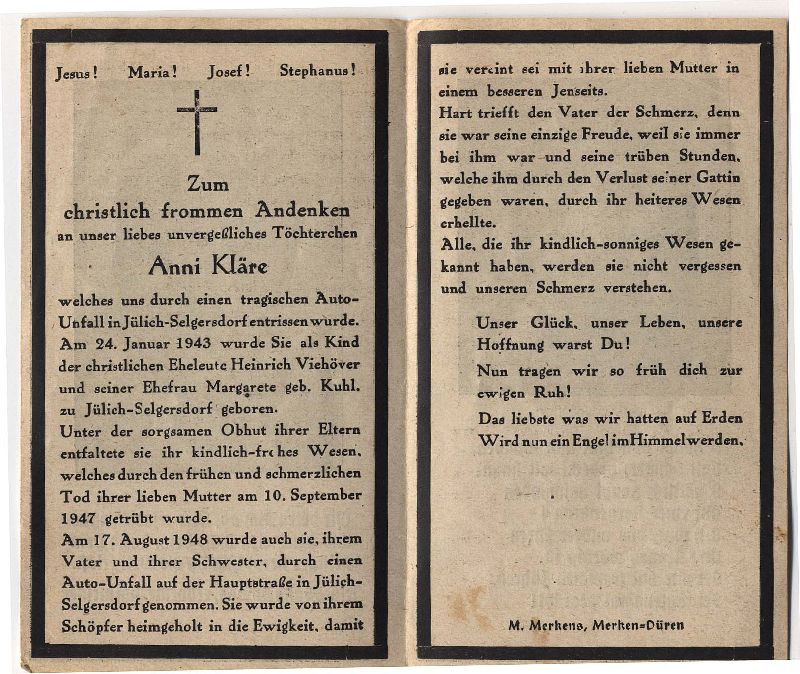 Jesus! Maria! Josef! Stephanus!
Zum
christlich frommen Andenken
an unser liebes unvergeßliches Töchterchen
Anni Kläre
welches uns durch einen tragischen Auto-
Unfall in Jülich-Selgersdorf entrissen wurde.
Am 24. Januar 1943 wurde Sie als Kind
der christlichen Eheleute Heinrich Viehöver
und seiner Ehefrau Margarete geb. Kuhl.
zu Jülich-Selgersdorf geboren.
Unter der sorgsamen Obhut ihrer Eltern
entfaltete sie ihr kindlich-frohes Wesen,
welches durch den frühen und schmerzlichen
Tod ihrer lieben Mutter am 10. September
1947 getrübt wurde.
Am 17. August 1948 wurde auch sie, ihrem
Vater und ihrer Schwester, durch einen
Auto-Unfall auf der Hauptstraße in Jülich-
Selgersdorf genommen. Sie wurde von ihrem
Schöpfer heimgeholt in die Ewigkeit, damit
sie vereint sei mit ihrer lieben Mutter in
einem besseren Jenseits.
Hart triefft den Vater der Schmerz, denn
sie war seine einzige Freude, weil sie immer
bei ihm war und seine trüben Stunden,
welche ihm durch den Verlust seiner Gattin
gegeben waren, durch ihr heiteres Wesen
erhellte.
Alle, die ihr kindlich-sonniges Wesen ge-
kannt haben, werden sie nicht vergessen
und unseren Schmerz verstehen.
Unser Glück, unser Leben, unsere
Hoffnung warst Du!
Nun tragen wir so früh dich zur
ewigen Ruh!
Das liebste was wir hatten auf Erden
Wird nun ein Engel im Himmel werden.
M. Merkens, Merken=Düren